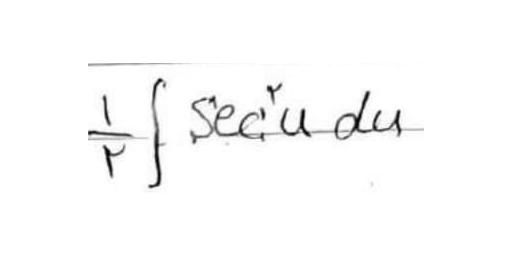 ۱/۲ ∫ Sec^۲ u du